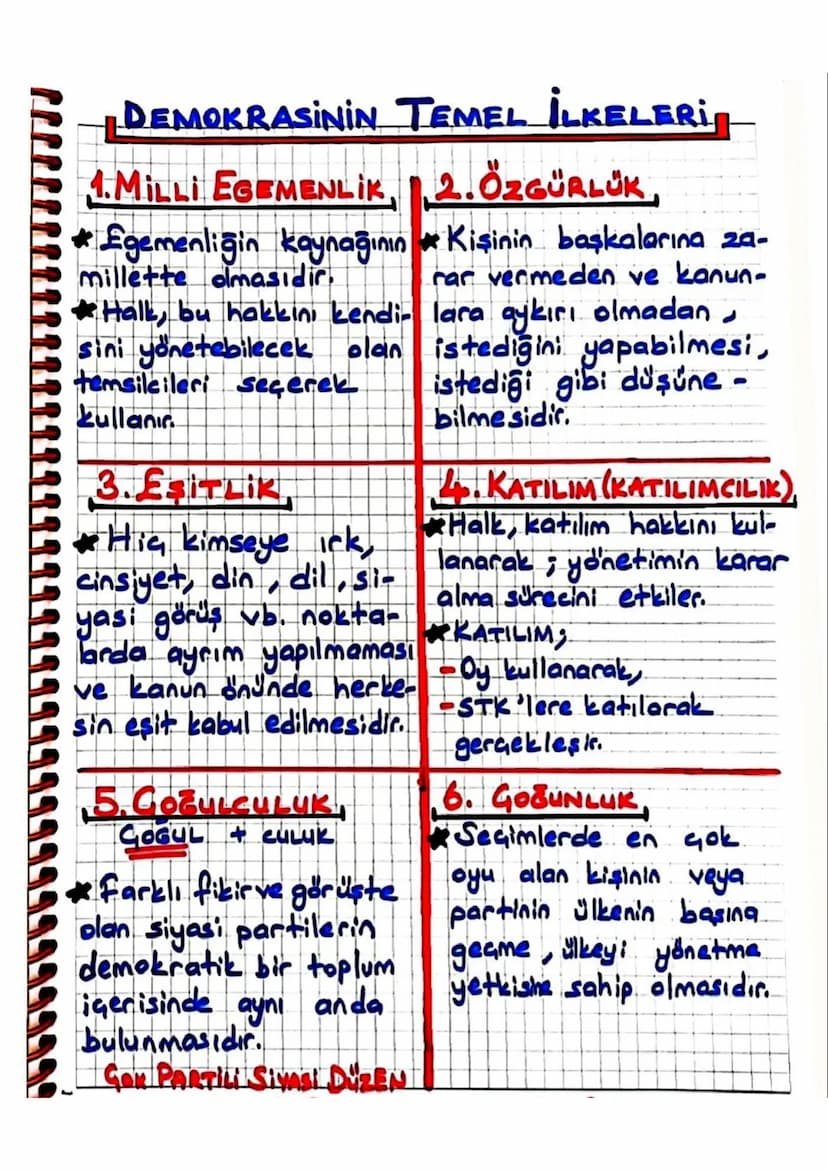 DEMOKRASİNİN TEMEL İLKELERİ
1. MİLLİ EGEMENLİK
★ Egemenliğin kaynağının
millette olmasıdır.
★ Halk, bu hakkını kendi-
sini yönetebilecek olan
temsilcileri seçerek
kullanır.
2. ÖZGÜRLÜK
★ Kişinin başkalarına za-
rar vermeden ve kanun-
lara aykırı olmadan,
istediğini yapabilmesi,
istediği gibi düşüne-
bilmesidir.
3. EŞİTLİK
★ Hiç kimseye ırk,
cinsiyet, din, dil, si-
yasi görüş vb. nokta-
larda ayrım yapılmaması
ve kanun önünde herke-
sin eşit kabul edilmesidir.
4. KATILIM (KATILIMCILIK)
★ Halk, katılım hakkını kul-
lanarak ; yönetimin karar
alma sürecini etkiler.
★ KATILIM;
- Oy kullanarak,
- STK'lere katılarak
gerçekleşir.
5. ÇOĞULCULUK
ÇOĞUL + CULUK
★ Farklı fikir ve görüşte
olan siyasi partilerin
demokratik bir toplum
içerisinde aynı anda
bulunmasıdır.
ÇOK PARTİLİ SİYASİ DÜZEN
6. ÇOĞUNLUK
★ Seçimlerde en çok
oyu alan kişinin veya
partinin ülkenin başına
geçme, ülkeyi yönetme
yetkisine sahip olmasıdır.